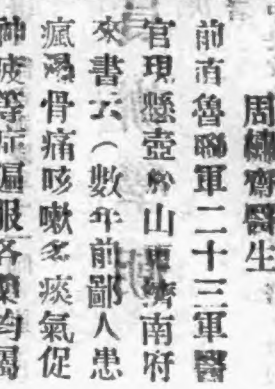 周㯋齋醫生
前直魯聯軍二十三軍醫
官現懸壺於山東濟南府
來書云(數年前鄙人患
瘋濕骨痛咳嗽多痰氣促
神疲等症遍服各藥均罔